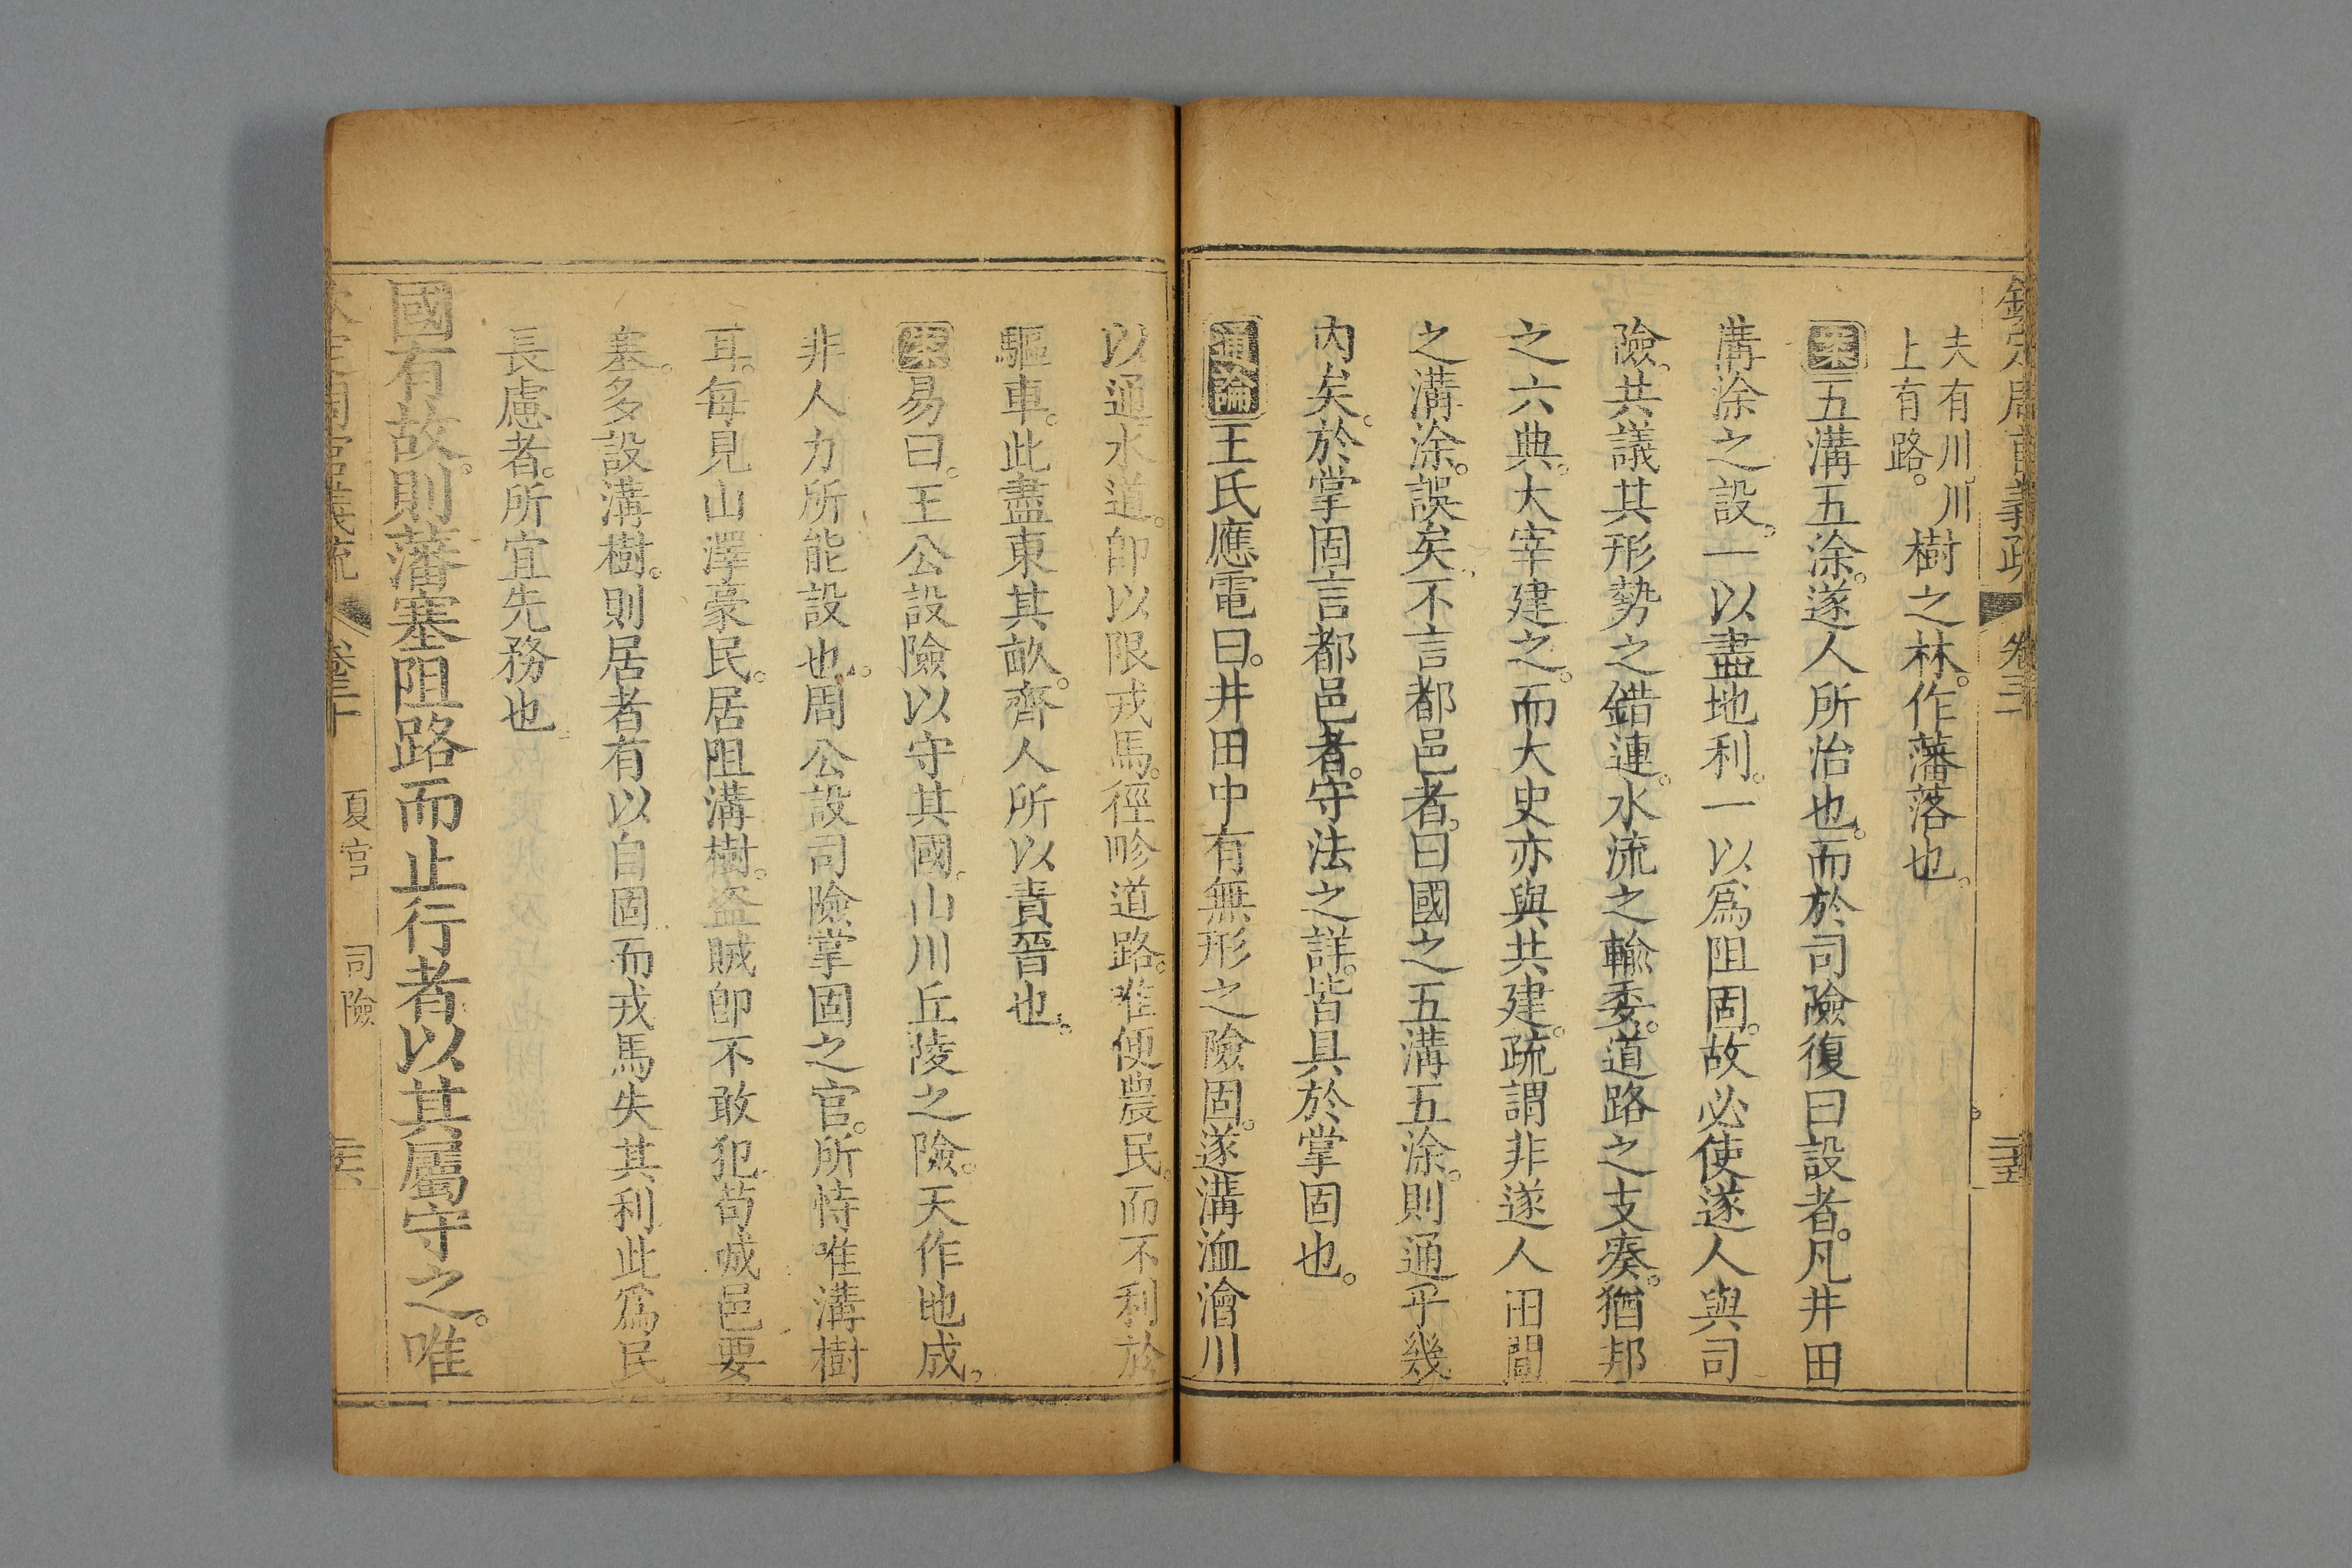 欽定周官義疏 卷三 二十五
夫有川川
上有路。樹之林。作藩落也。
案五溝五涂。遂人所治也。而於司險復曰設者。凡井田
溝涂之設。一以盡地利。一以爲阻固。故必使遂人與司
險。共議其形勢之錯連。水流之輸委。道路之支湊。猶邦
之六典。大宰建之。而大史亦與共建。疏謂非遂人田閒
之溝涂。誤矣。不言都邑者。曰國之五溝五涂。則通乎畿
內矣。於掌固言都邑者。守法之詳。皆具於掌固也。
通論王氏應電曰。井田中有無形之險固。遂溝洫澮川
以通水道。卽以限戎馬。徑畛道路。唯便農民。而不利於
驅車。此盡東其畝。齊人所以責晉也。
案易曰。王公設險以守其國。山川丘陵之險。天作地成。
非人力所能設也。周公設司險掌固之官。所恃唯溝樹
耳。每見山澤豪民。居阻溝樹。盜賊卽不敢犯。苟城邑要
塞。多設溝樹。則居者有以自固而戎馬失其利此爲民
長慮者。所宜先務也
國有故。則藩塞阻路而止行者以其屬守之。唯
欽定周官義疏 卷三十 夏官 司險 二十六